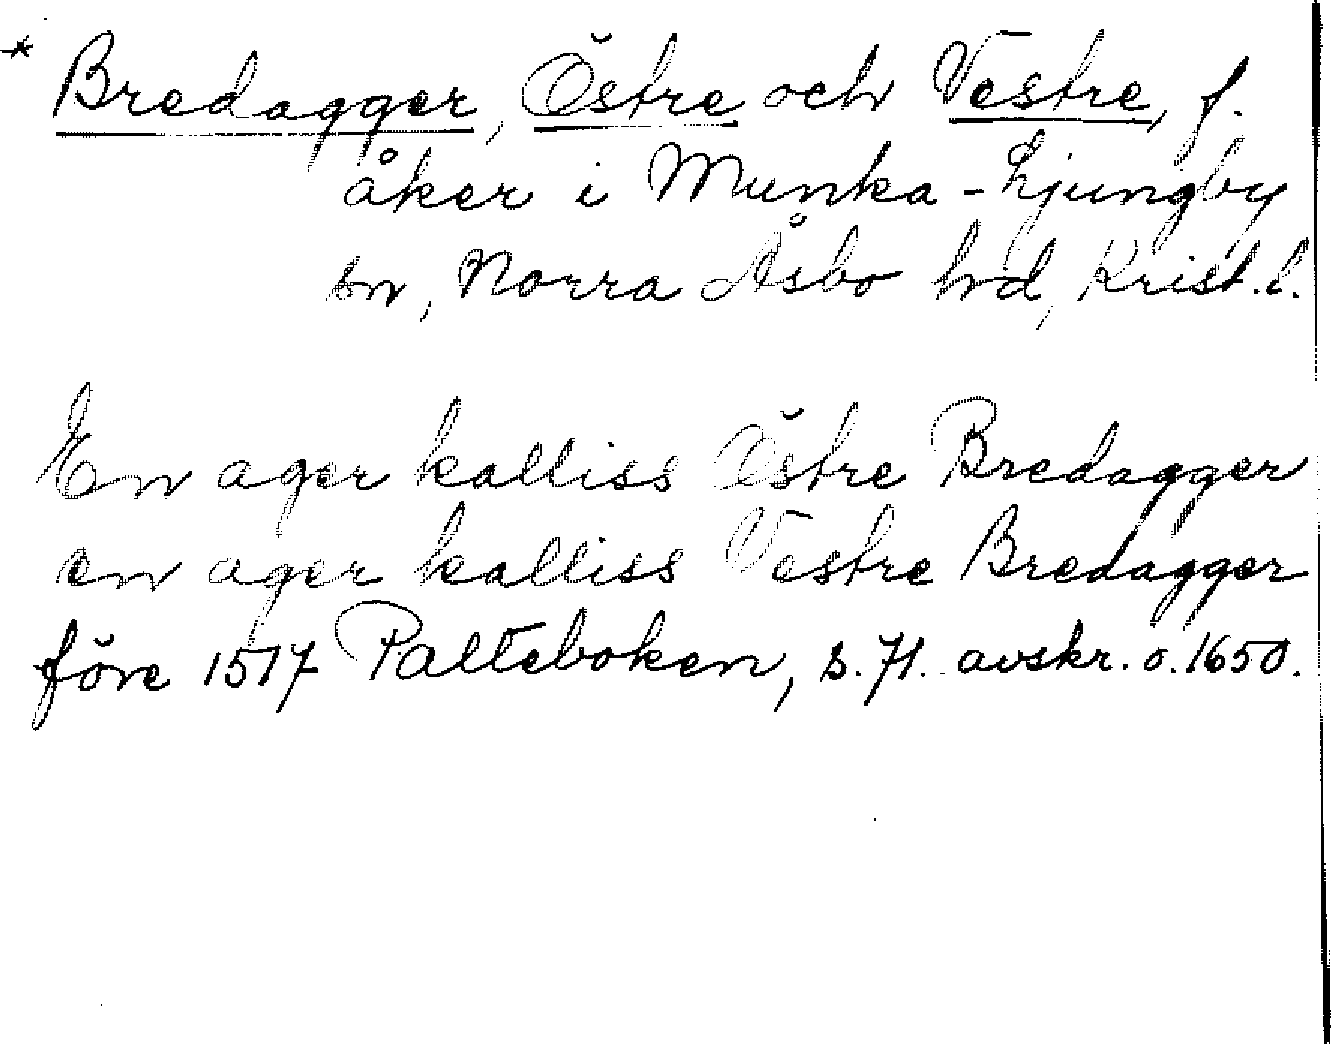 * Bredagger, Östre och Vestre, f.
åker i Munka-Ljungby
sn, Norra Åsbo hd, Krist. l.
En ager kalliss Östre Bredagger
en ager kalliss Vestre Bredagger
före 1517 Palteboken, s. 71. avskr. o. 1650.